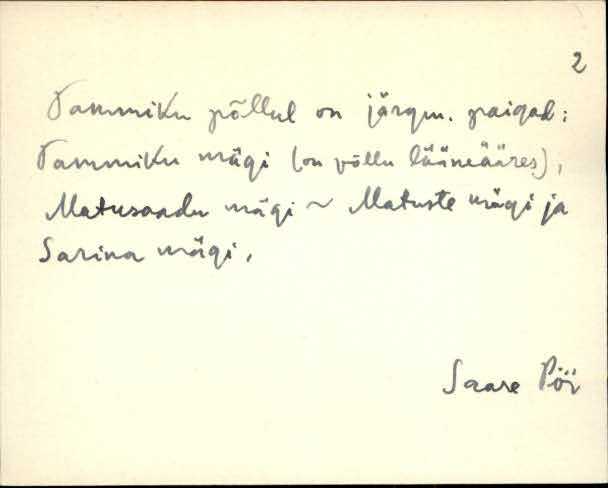 2
Tammiku põllul on järgm. paigad:
Tammiku mägi (on põllu lääneääres),
Matusaadu mägi ~ Matuste mägi ja
Sarina mägi.
Saare Pöi